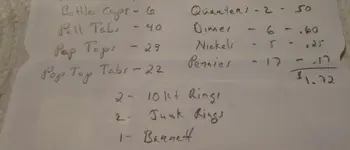 Bottle Caps - 6 Quarters - 2 - .50
Pull Tabs - 40 Dimes - 6 - .60
Pop Tops - 29 Nickels - 5 - .25
Pop Top Tabs - 22 Pennies - 17 - .17
$1.72
2 - 10 Kt Rings
2 - Junk Rings
1 - Barrett